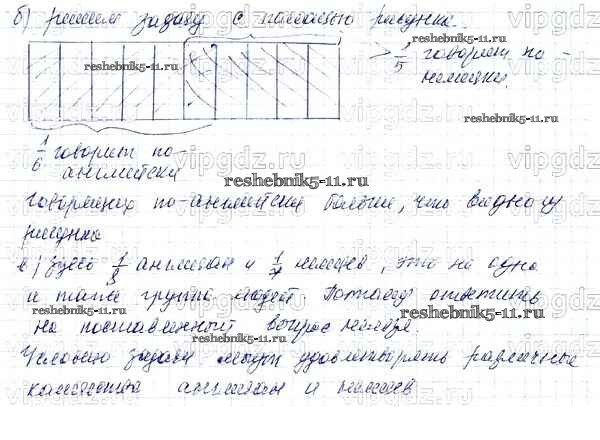 б) решим задачу с помощью рисунка.
> 1/5 говорит по-
немецки.
1/6 говорит по-
английски
говорящих по-английски больше, что видно из
рисунка
в) Здесь 1/8 англичан и 1/7 немцев, это не одна
и та же группа людей. Поэтому ответить
на поставленный вопрос нельзя.
Условию задачи могут удовлетворять различные
количества англичан и немцев
reshebnik5-11.ru
reshebnik5-11.ru
reshebnik5-11.ru
reshebnik5-11.ru
reshebnik5-11.ru
reshebnik5-11.ru
vipgdz.ru